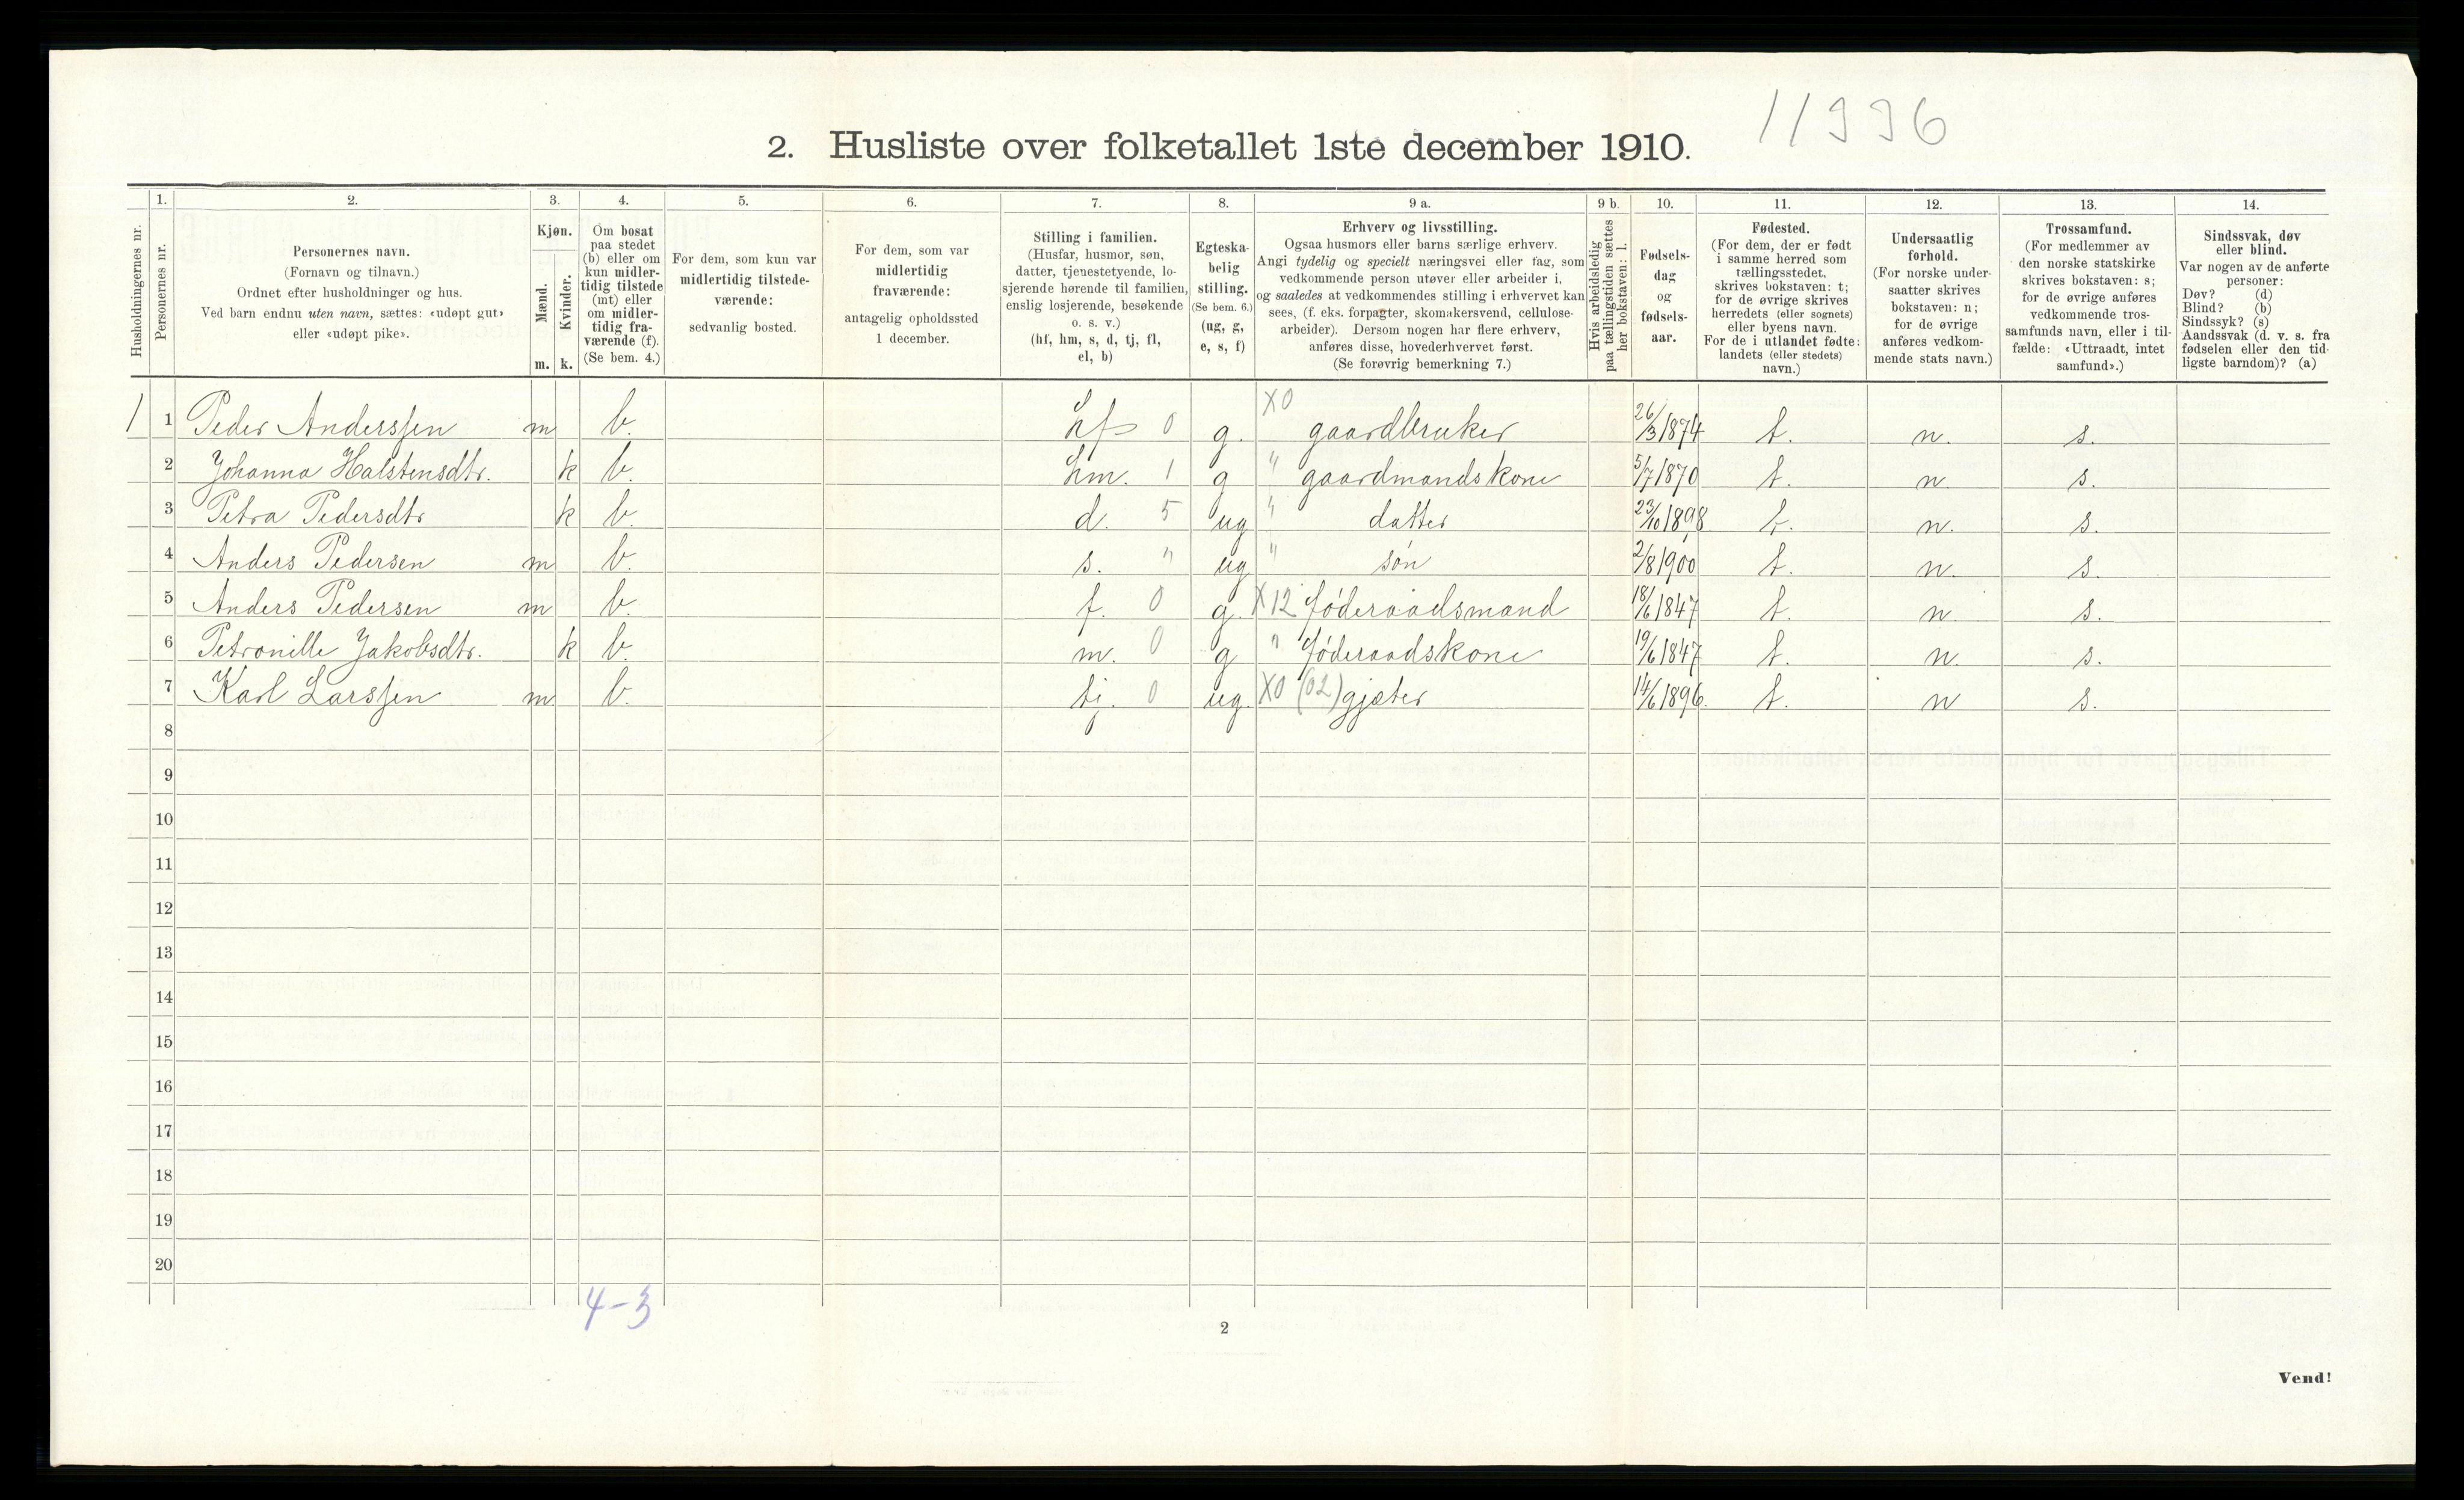 11996
2. Husliste over folketallet 1ste december 1910.
1. 2. 3. 4. 5. 6. 7. 8. 9 a. 9 b. 10. 11. 12. 13. 14.
Husholdningernes nr.
Personernes nr.
Personernes navn.
(Fornavn og tilnavn.)
Ordnet efter husholdninger og hus.
Ved barn endnu uten navn, sættes: «udøpt gut»
eller «udøpt pike».
Kjøn.
Mænd.
m.
Kvinder.
k.
Om bosat
paa stedet
(b) eller om
kun midler-
tidig tilstede
(mt) eller
om midler-
tidig fra-
værende (f).
(Se bem. 4.)
For dem, som kun var
midlertidig tilstede-
værende:
sedvanlig bosted.
For dem, som var
midlertidig
fraværende:
antagelig opholdssted
1 december.
Stilling i familien.
(Husfar, husmor, søn,
datter, tjenestetyende, lo-
sjerende hørende til familien,
enslig losjerende, besøkende
o. s. v.)
(hf, hm, s, d, tj, fl,
el, b)
Egteska-
belig
stilling.
(Se bem. 6.)
(ug, g,
e, s, f)
Erhverv og livsstilling.
Ogsaa husmors eller barns særlige erhverv.
Angi tydelig og specielt næringsvei eller fag, som
vedkommende person utøver eller arbeider i,
og saaledes at vedkommendes stilling i erhvervet kan
sees, (f. eks. forpagter, skomakersvend, cellulose-
arbeider). Dersom nogen har flere erhverv,
anføres disse, hovederhvervet først.
(Se forøvrig bemerkning 7.)
Hvis arbeidsledig
paa tællingstiden sættes
her bokstaven: l.
Fødsels-
dag
og
fødsels-
aar.
Fødested.
(For dem, der er født
i samme herred som
tællingsstedet,
skrives bokstaven: t;
for de øvrige skrives
herredets (eller sognets)
eller byens navn.
For de i utlandet fødte:
landets (eller stedets)
navn.)
Undersaatlig
forhold.
(For norske under-
saatter skrives
bokstaven: n;
for de øvrige
anføres vedkom-
mende stats navn.)
Trossamfund.
(For medlemmer av
den norske statskirke
skrives bokstaven: s;
for de øvrige anføres
vedkommende tros-
samfunds navn, eller i til-
fælde: «Uttraadt, intet
samfund».)
Sindssvak, døv
eller blind.
Var nogen av de anførte
personer:
Døv? (d)
Blind? (b)
Sindssyk? (s)
Aandssvak (d. v. s. fra
fødselen eller den tid-
ligste barndom)? (a)
1 1 Peder Anderssen m b. hf 0 g. X0 gaardbruker 26/3 1874 t. n. s.
2 Johanna Halstensdtr. k b. hm. 1 g " gaardmandskone 5/7 1870 t. n. s.
3 Petra Pedersdtr k b. d. 5 ug " datter 23/10 1898 t. n. s.
4 Anders Pedersen m b. s. " ug " søn 2/8 1900 t. n. s.
5 Anders Pedersen m b. f. 0 g. X12 føderaadsmand 18/6 1847 t. n. s.
6 Petronille Jakobsdtr. k b. m. 0 g " føderaadskone 19/6 1847 t. n. s.
7 Karl Larssen m b. tj. 0 ug. X0 (02) gjæter 14/6 1896. t. n s.
8
9
10
11
12
13
14
15
16
17
18
19
20
4-3
2
Vend!